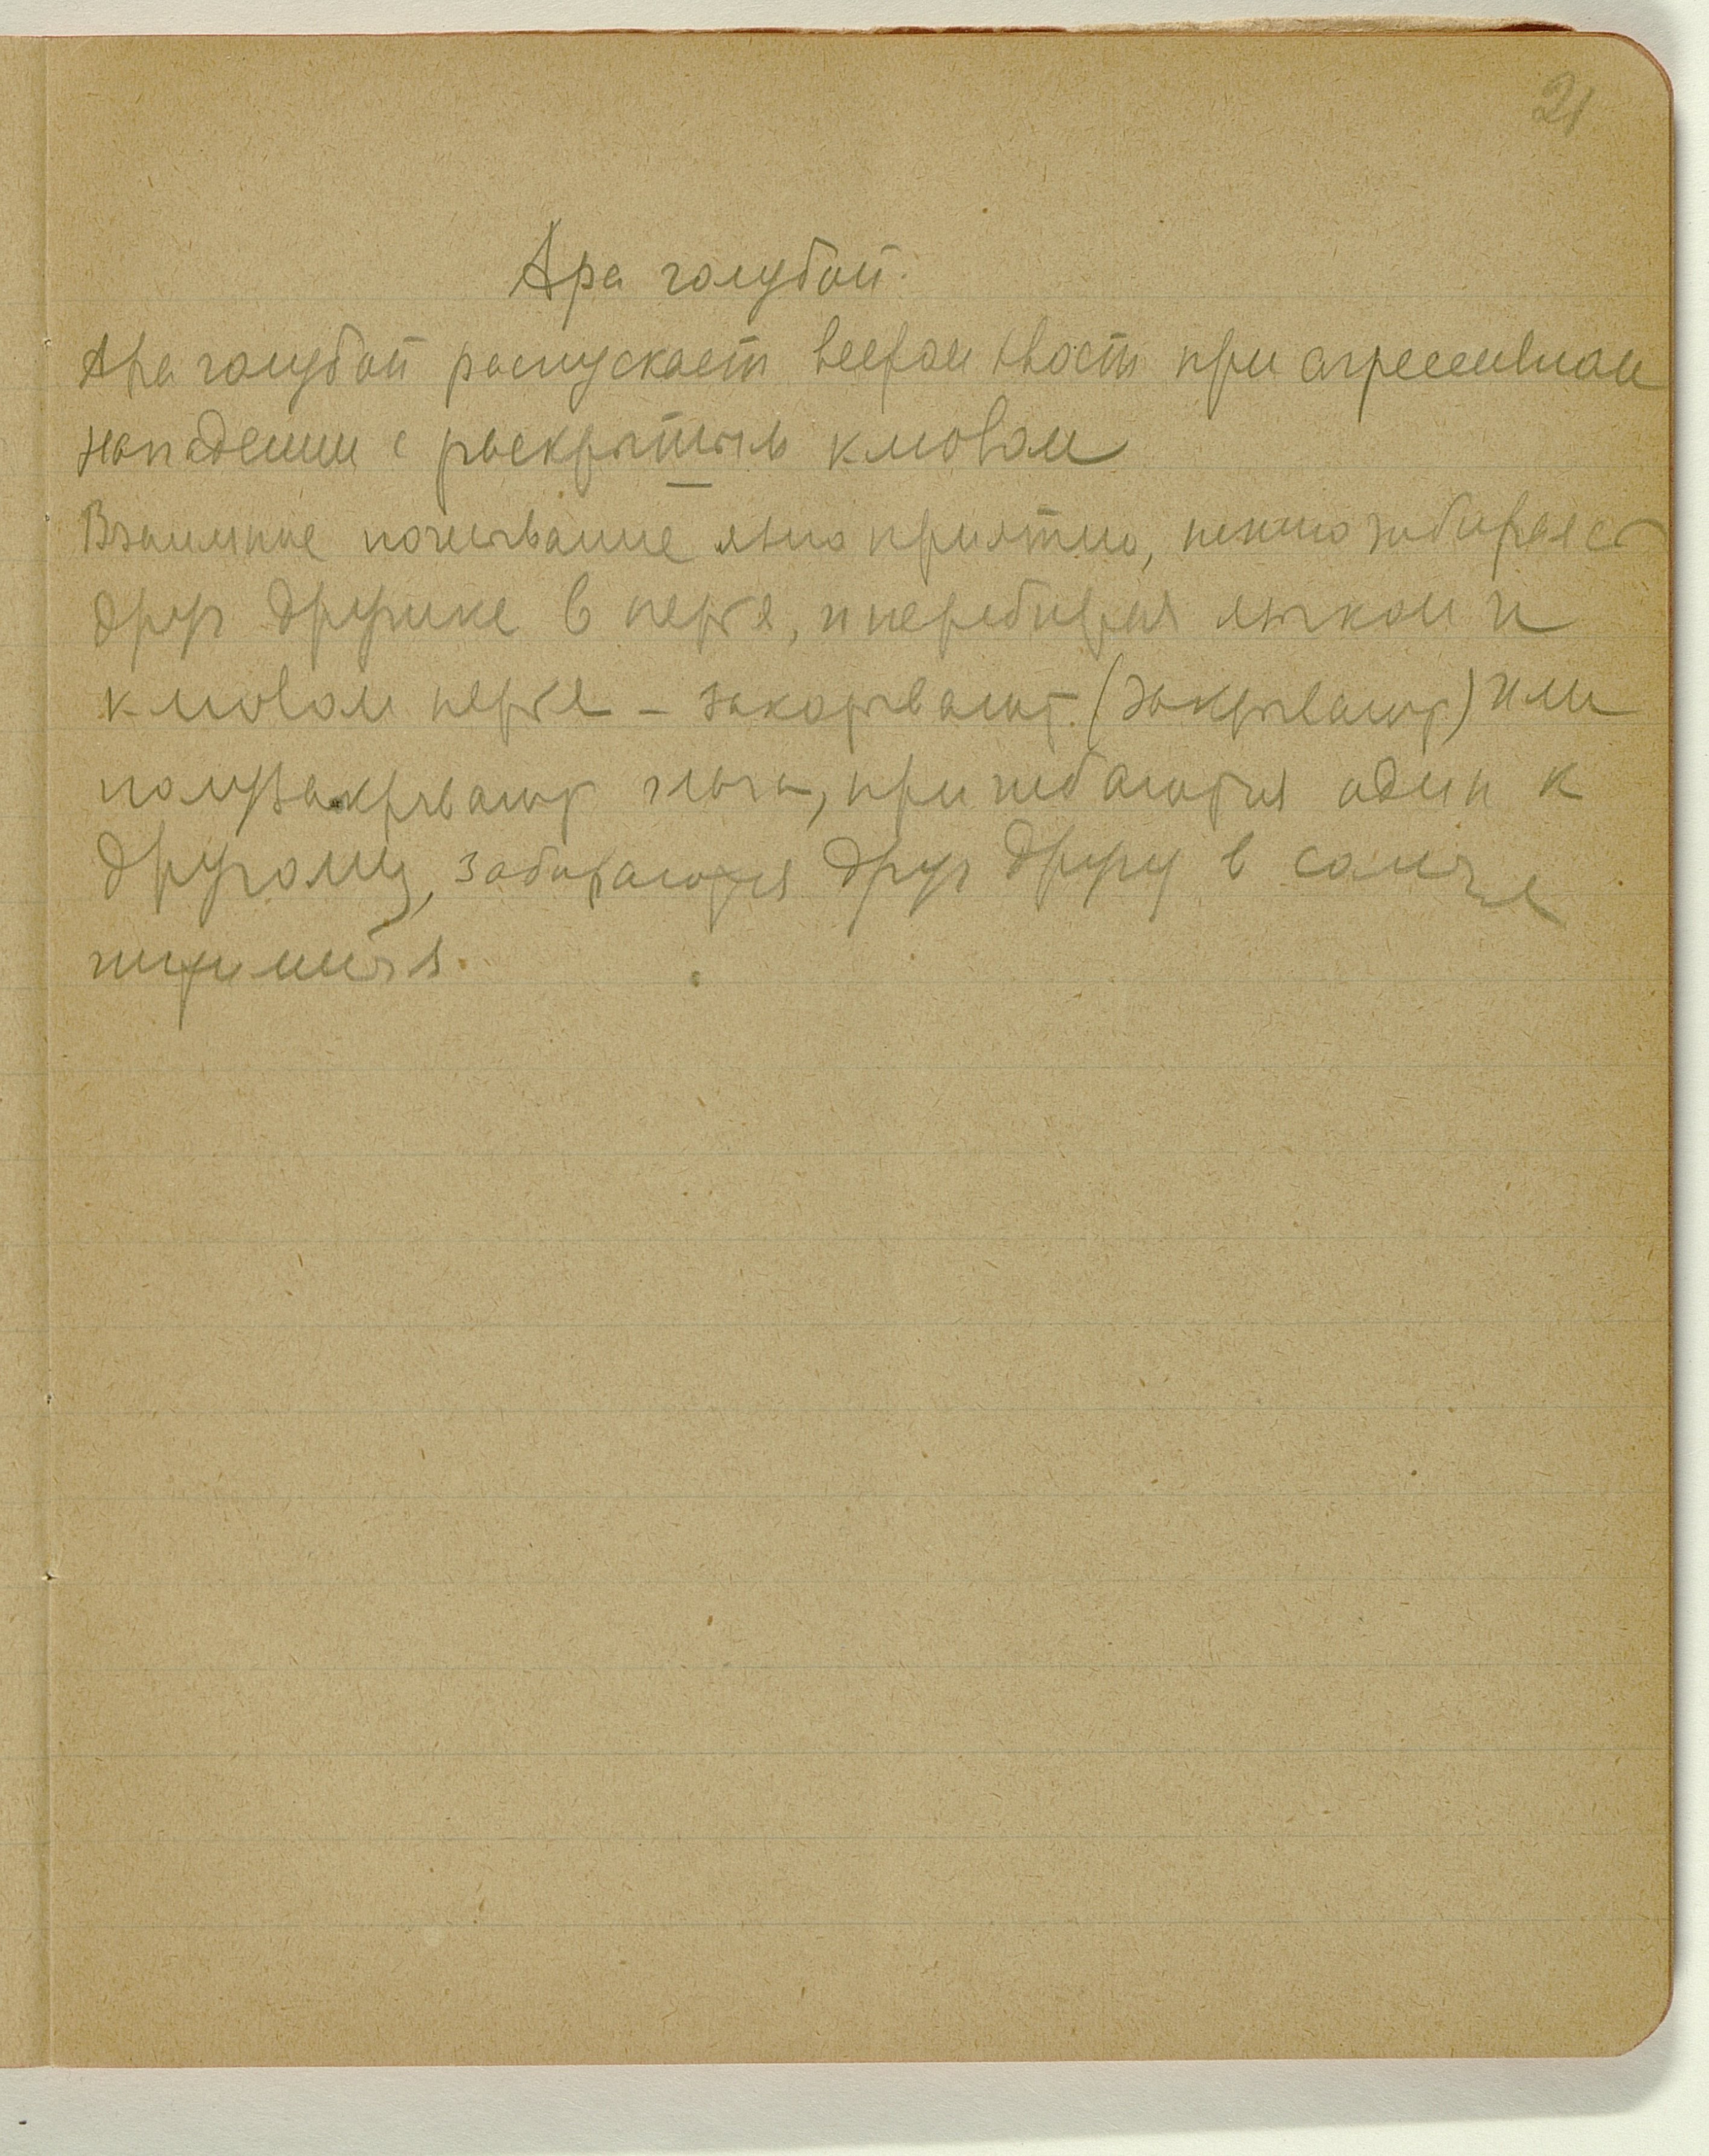 21
Ара голубой.
Ара голубой распускает веером хвост при агрессивном
нападении с раскрытым клювом
Взаимное почесывание явно приятно, нежно забираясь
друг дружке в перья, и перебирая язычком и
клювом перья – закрывают (закрывают) или
полузакрывают глаза, пригибаются один к
другому, забираются друг другу в самые